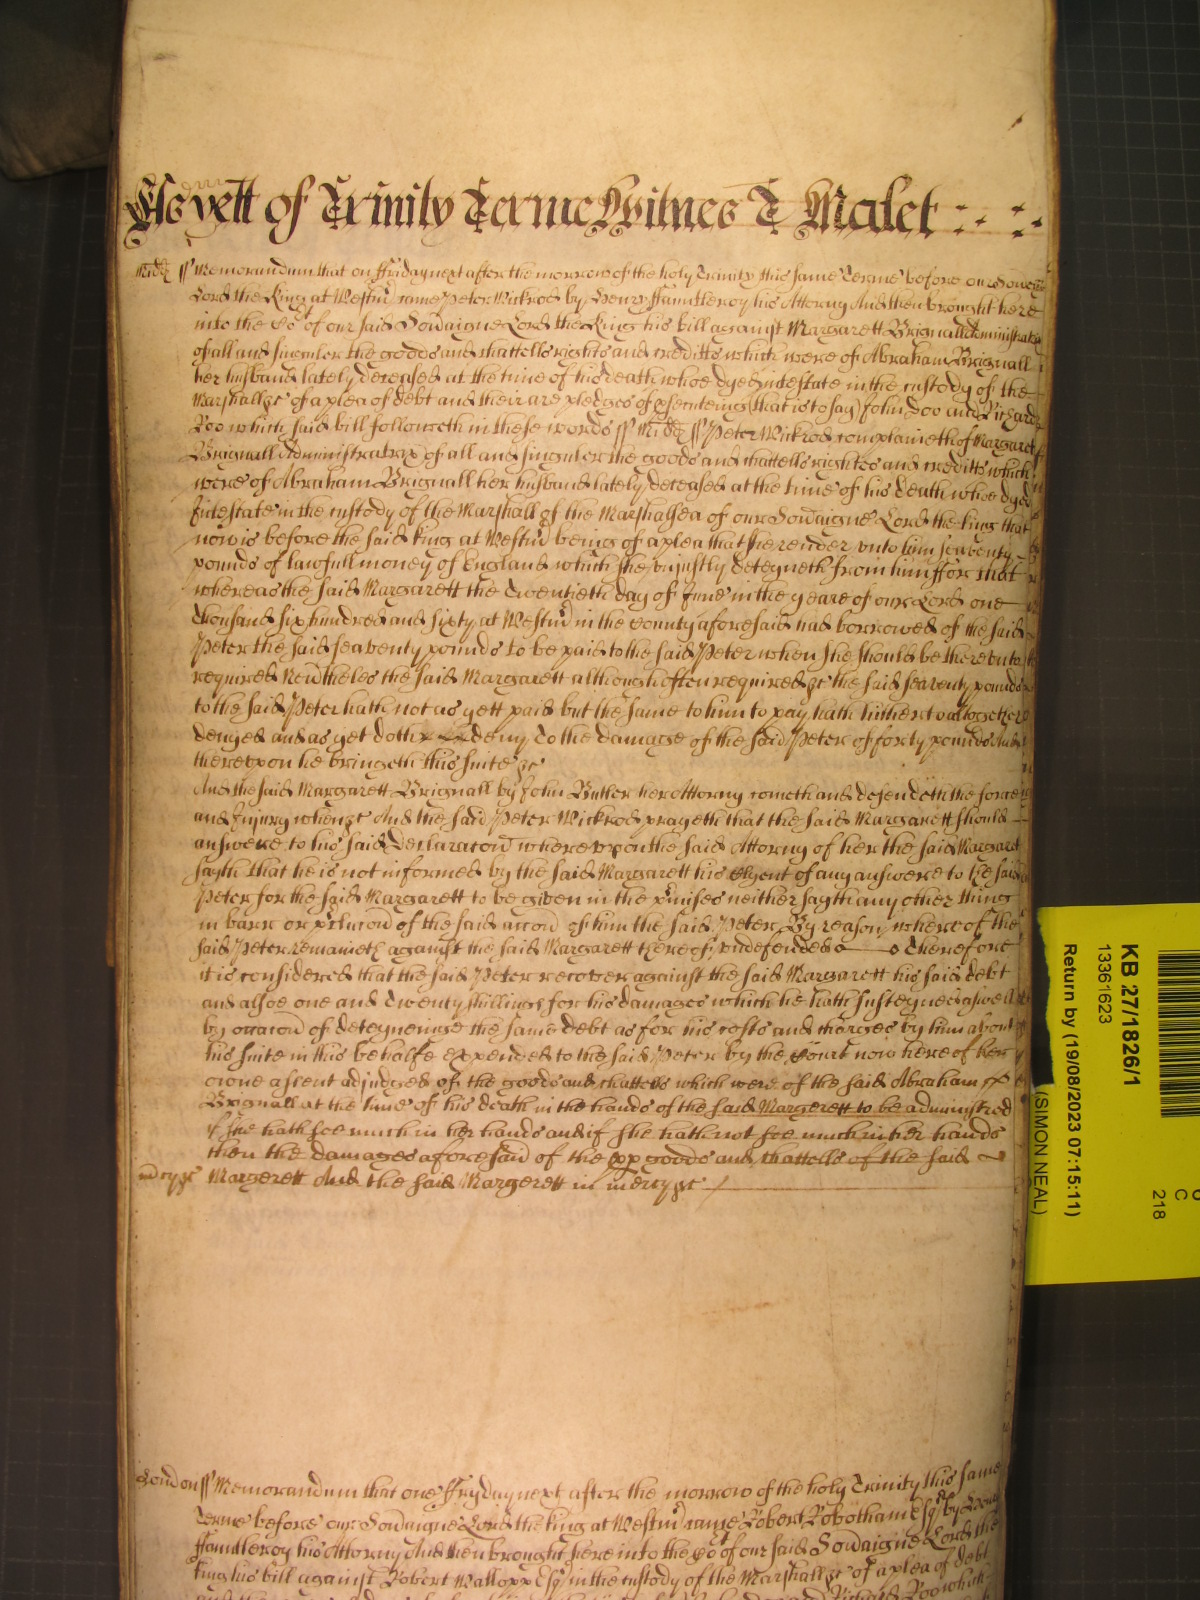 As yett of Trinity Terme Witnes T Malet
Midd ss Memorandum that on ffriday next after the morrow of the holy Trinity this same Terme before our Sovaigne
Lord the King at Westm̃ came Peter Wickrod by Henry ffauntleroy his Attorny And then brought here
into the Cot of our said Sovaigne Lord the King his bill against Margarett Brignall Administratrix
of all and singuler the goods and chattells rights and creditts which were of Abraham Brignall
her husband lately deceased at the time of his death whoe dyed intestate in the custody of the
Marshall &c of a plea of debt and their are pledges of psecuteing (that is to say) John Doo and Richard
Roo which said bill followeth in these words ss Midd ss Peter Wickrod complaineth of Margarett
Brignall Administratrix of all and singuler the goods and chattells rightes and creditts which
were of Abraham Brignall her husband lately deceased at the time of his death whoe dyed
Intestate in the custody of the Marshall of the Marshalsea of our Sovaigne Lord the King that
now is before the said King at Westm̃ being of a plea that she render unto him seaventy
pounds of lawfull money of England which she unjustly deteyneth from him ffor that
whereas the said Margarett the twentieth day of June in the yeare of our Lord one
thousand six hundred and sixty at Westm̃ in the County aforesaid had borrowed of the said
Peter the said seaventy pounds to be paid to the said Peter when she should be thereunto
required Nevtheles the said Margarett although often required &c the said seaventy pounds
to the said Peter hath not as yett paid but the same to him to pay hath hitherto altogether
denyed and as yet doth deny To the damage of the said Peter of forty pounds And
thereupon he bringeth this suite &c
And the said Margarett Brignall by John Butler her Attorny cometh and defendeth the force
and Injury when &c And the said Peter Wickrod prayeth that the said Margarett should
answere to his said declaracon whereupon the said Attorny of her the said Margarett
sayth that he is not informed by the said Margarett his Clyent of any answere to the said
Peter for the said Margarett to be given in the pmises neither sayth any other thing
in barr or pclucon of the said accon of him the said Peter By reason where of the
said Peter remaineth against the said Margarett thereof undefended Therefore
it is considered that the said Peter recover against the said Margarett his said debt
and alsoe one and twenty shillings for his damages which he hath susteyned aswell
by occacon of deteyneinge the same debt as for his costs and charges by him about
his suite in this behalfe expended to the said Peter by the Court now here of her
owne assent adjudged of the goods and chattells which were of the said Abraham
Brignall at the time of his death in the hands of the said Margerett to be administred
if she hath soe much in her hands and if she hath not soe much in her hands
then the damages aforesaid of the pp goods and chattells of the said
mcy &c Margerett And the said Margerett in mercy &c
London ss Memorandum that one ffryday next after the morrow of the holy Trinity this same
Terme before our Sovaigne Lord the King at Westm̃ came Robert Robotham Esq by Henry
ffauntleroy his Attorny And then brought here into the Cot of our said Sovaigne Lord the
King his bill against Robert Wallopp Esq in the custody of the Marshall &c of a plea of debt
KB 27/1826/1
13361623
Return by (19/08/2023 07:15:11)
(SIMON NEAL)
C
218